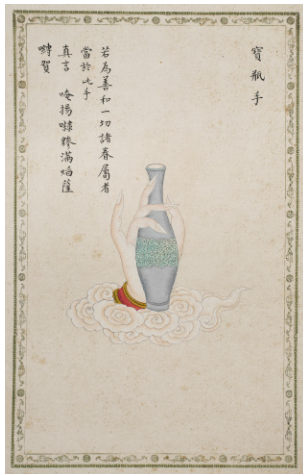 寶瓶手
若為善和一切諸眷屬者
當於此手
真言 唵揭㘑糝滿焰薩
嚩賀